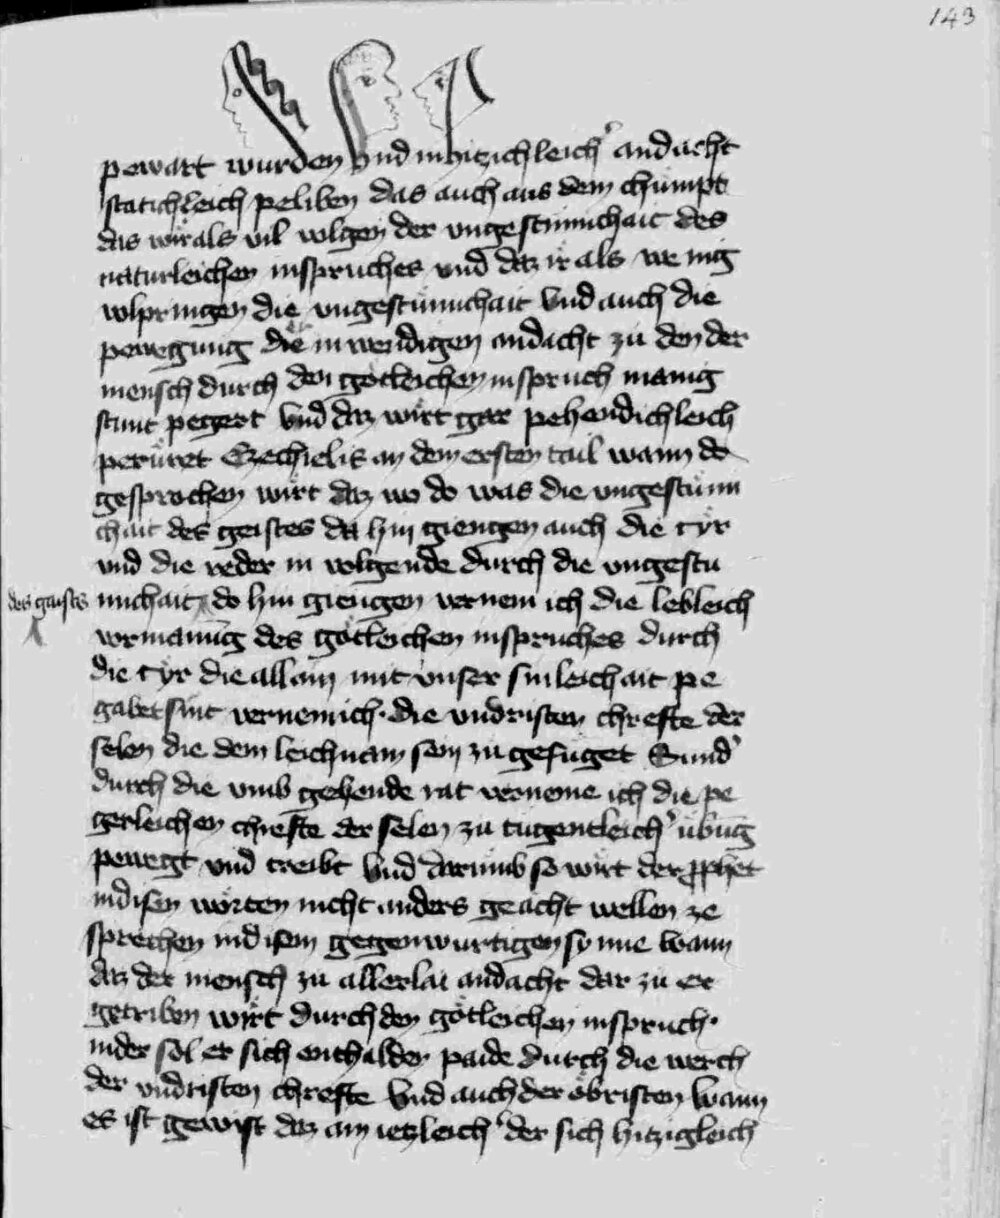 143
pewart wurden vnd in hiczichleich' andacht
statichleich peliben das auch aus dem chumpt
das wir als vil volgen der vngestumichait des
naturleichen inspruches vnd daz ir als wenig
volpringen die vngestumichait vnd auch die
pewegung die inwendigen andacht zu den der
mensch durch den gotleichen inspruch manig
stunt pegert vnd daz wirt gar pehendichleich
perüret Ezechielis an dem ersten tail wann do
gesprochen wirt daz wo do was die vngestüm
chait des geistes da hin giengen auch die tyr
vnd die reder in volgende durch die vngestu
des gaistes michait do hin giengen vernem ich die lebleich
vormanūg des götleichen inspruches durch
die tyr die allain mit vnser sinleichait pe
gabet sint vernem ich die vndristen chrefte der
selen die dem leichnam sein zu gefüget Sund'
durch die vmb gehende rat verneme ich die pe
gerleichen chrefte der selen zu tugentleich' übūg
pewegt vnd treibt vnd darumb so wirt der pphet
in disen worten nicht anders geacht wellen ze
sprechen in disem gegenwurtigen synne wann
daz der mensch zu allerlai andacht dar zu er
getriben wirt durch den götleichen inspruch
in der sol er sich enthalden paide durch die werch
der vndristen chrefte vnd auch der öbristen wann
es ist gewist daz ain ietzleich' der sich hitzigleich